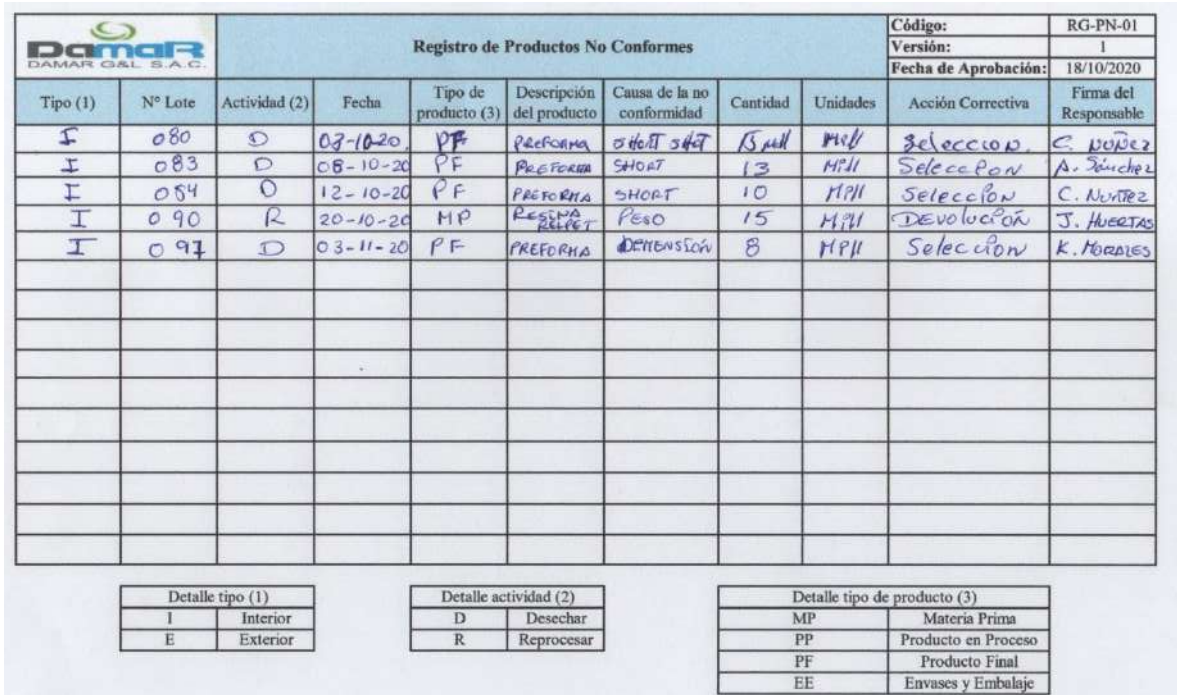 DamaR
DAMAR G&L S.A.C.
Registro de Productos No Conformes
Código: RG-PN-01
Versión: 1
Fecha de Aprobación: 18/10/2020
Tipo (1) Nº Lote Actividad (2) Fecha Tipo de producto (3) Descripción del producto Causa de la no conformidad Cantidad Unidades Acción Correctiva Firma del Responsable
I 080 D 03-10-20 PF PREFORMA SHORT SHOT Mill Seleccion. C. NUÑEZ
I 083 D 08-10-20 PF PREFORMA SHORT 13 Mill Seleccion A. Sánchez
I D 12-10-20 PF PREFORMA SHORT 10 Mill Seleccion C. NUÑEZ
I 090 R 20-10-20 MP RESINA 15 Mill PESO DEVOLUCIÓN J. HUERTAS
I 097 D 03-11-20 PF PREFORMA DEMENSIÓN 8 Mill Seleccion K. MORALES
Detalle tipo (1)
I Interior
E Exterior
Detalle actividad (2)
D Desechar
R Reprocesar
Detalle tipo de producto (3)
MP Materia Prima
PP Producto en Proceso
PF Producto Final
EE Envases y Embalaje